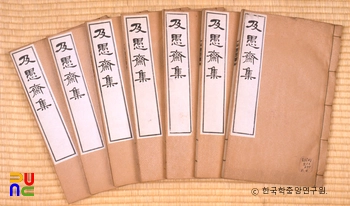 及愚齋集
及愚齋集
及愚齋集
及愚齋集
及愚齋集
及愚齋集
及愚齋集
ⓒ 한국학중앙연구원